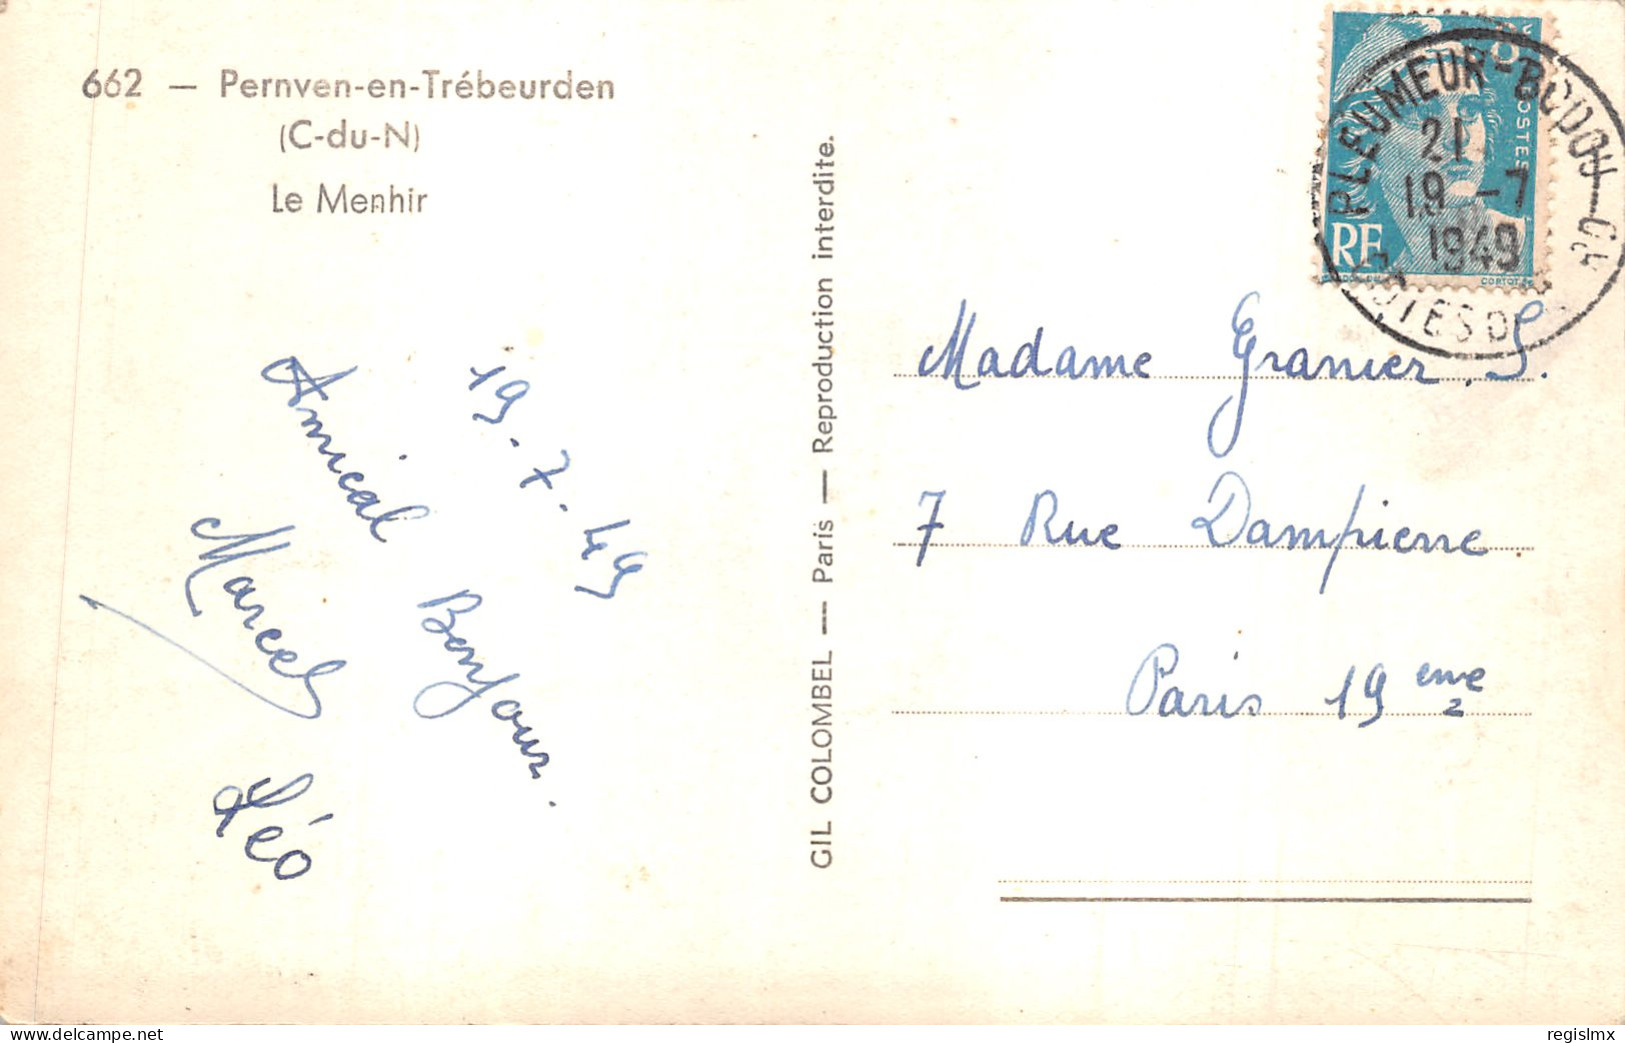 662 — Pernven-en-Trébeurden
(C-du-N)
Le Menhir
19-7-49
Amical Bonjour.
Marcel
Léo
GIL COLOMBEL — Paris — Reproduction interdite.
POSTES
RF
PLEUMEUR-BODOU
21
19 -7
1949
Madame Granier. S.
7 Rue Dampierre
Paris 19 eme
delcampe.net
regislmx